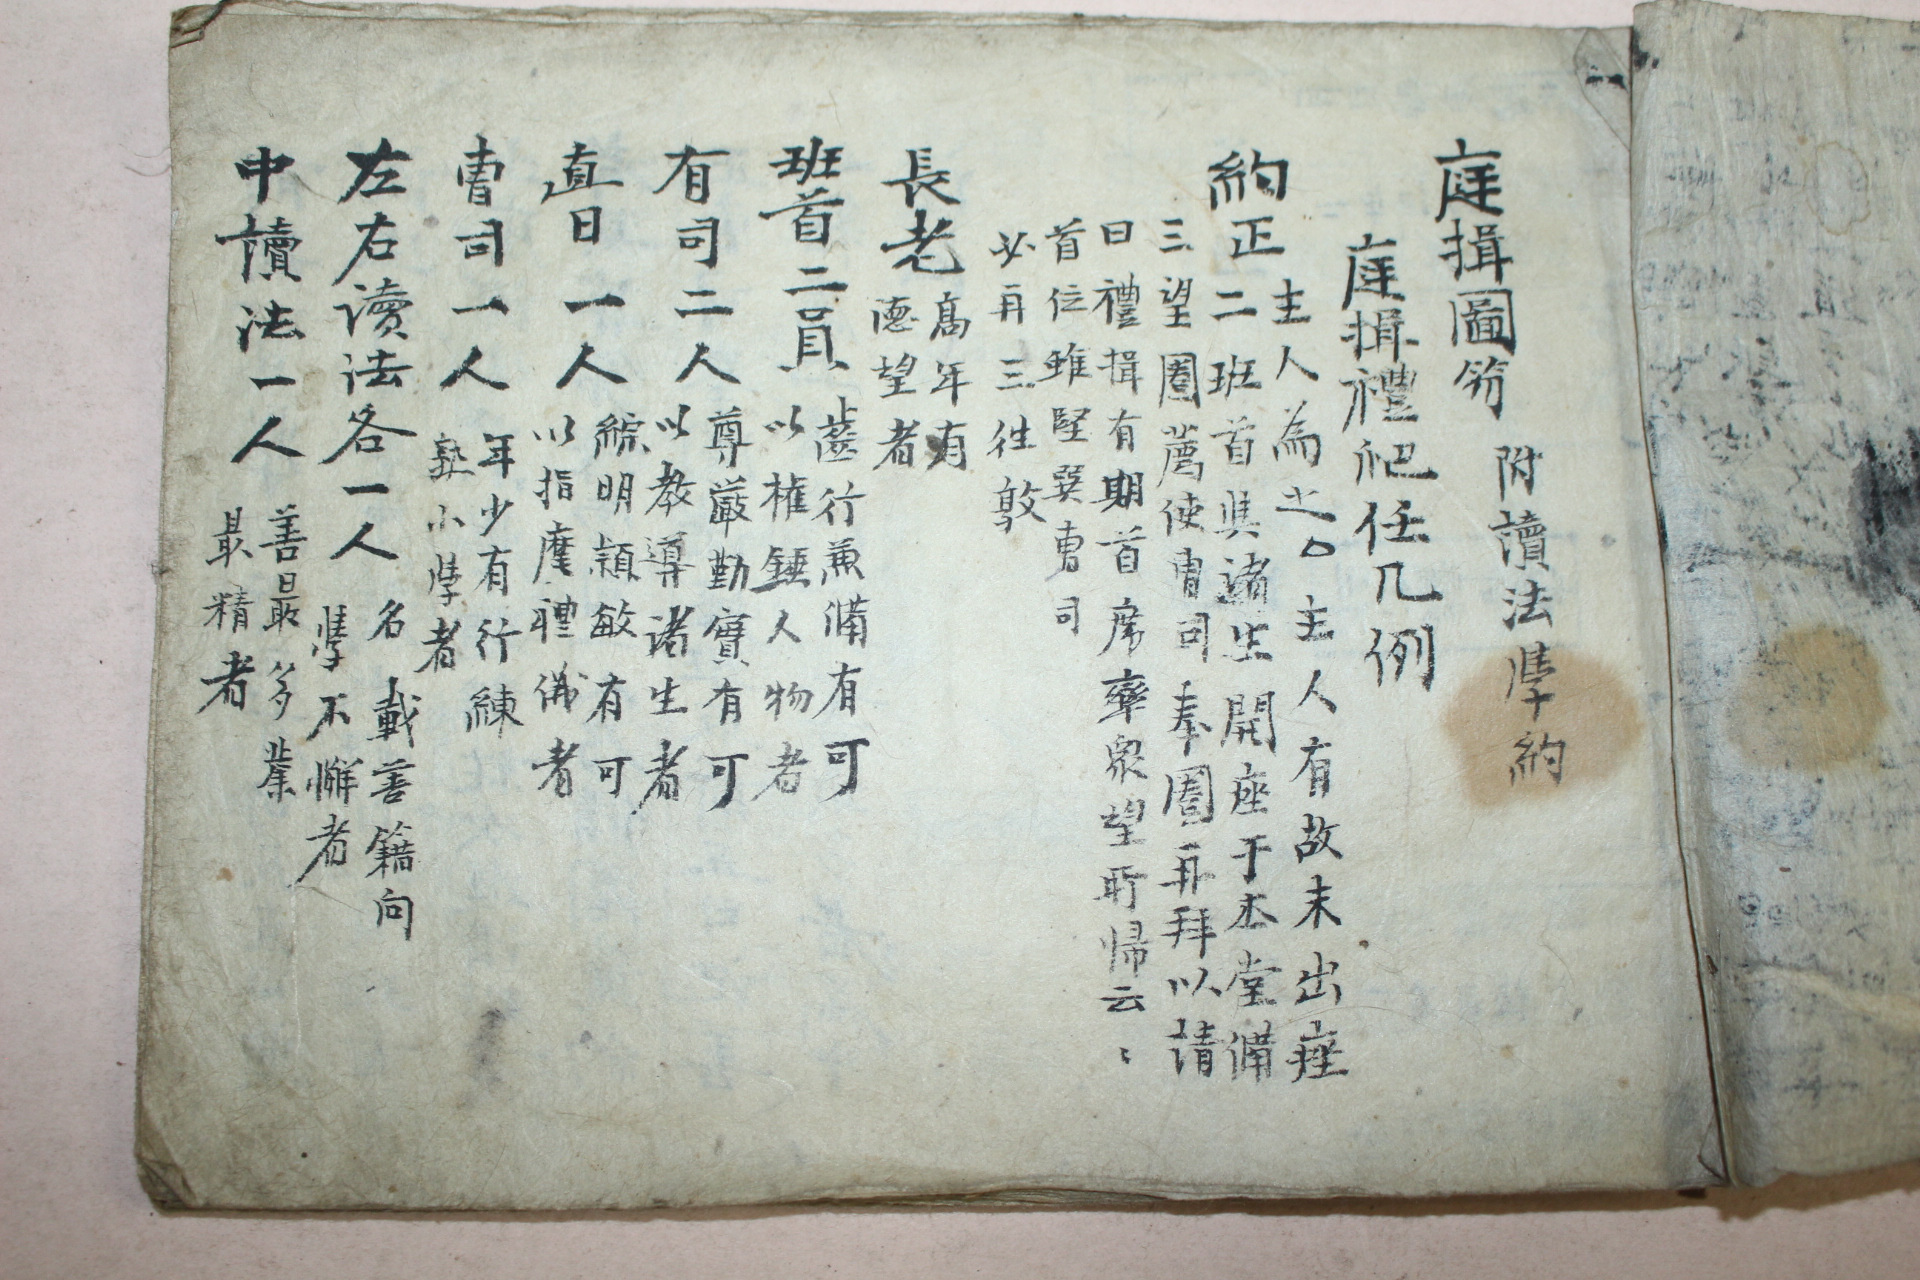 庭揖圖笏 附讀法學約
庭揖禮祀任凡例
約正 主人為之○主人有故未出座
二班首與諸生開座于本堂備
三望圈薦使曺司奉圈再拜以請
曰禮揖有期首席率衆望所歸云〻
首位雖堅巽曺司
必再三徃敦
長老 高年有
德望者
班首二員 齒行兼備有可
以權錘人物者
有司二人 尊嚴勤實有可
以教導諸生者
直日一人 綜明穎敏有可
以指麾禮儀者
曺司一人 年少有行練
塾小學者
左右读法各一人 名載善籍向
學不懈者
中讀法一人 善最多業
最精者